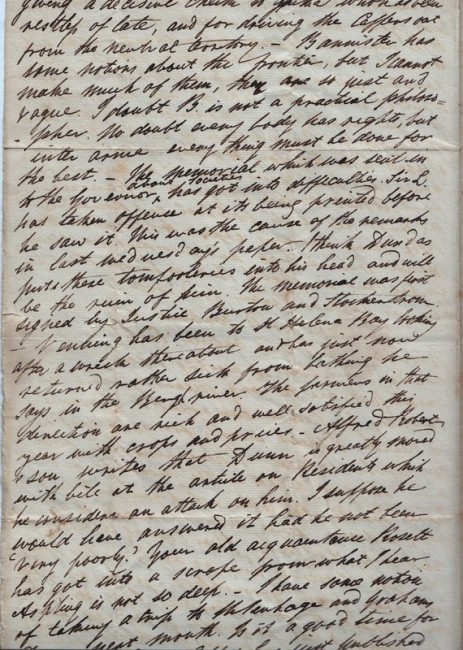 giving a decisive check to Gaika who has been
restless of late, and for driving the Caffers out
from the neutral territory. — Bannister has
some notions about the frontier, but I cannot
make much of them, they are so just and
vague. I doubt B. is not a practical philoso=
pher. No doubt every body has rights, but
inter arma every thing must be done for
the best. — The memorial which was sent in
to the Governor about Societies has got into difficulties. Lord
has taken offence at its being printed before
he saw it. This was the cause of the remarks
in last wednesday's paper. I think Dundas
puts these tomfooleries into his head and will
be the ruin of him. The memorial was first
signed by Justice Burton and Stockenstrom.
— Venning has been to St Helena Bay looking
after a wreck thereabout and has just now
returned rather sick from bathing he
says in the Berg river. The farmers in that
direction are rich and well satisfied this
year with crops and prices. — Alfred Robert
son writes that Dunn is greatly moved
with bile at the article on Residents which
he considers an attack on him. I suppose he
would have answered it had he not been
'very poorly.' Your old acquaintance Rosett
has got into a scrape from what I hear.
Aspling is not so deep. — I have some notion
of taking a trip to Uitenhage and Grahams
next month. Is it a good time for
just published